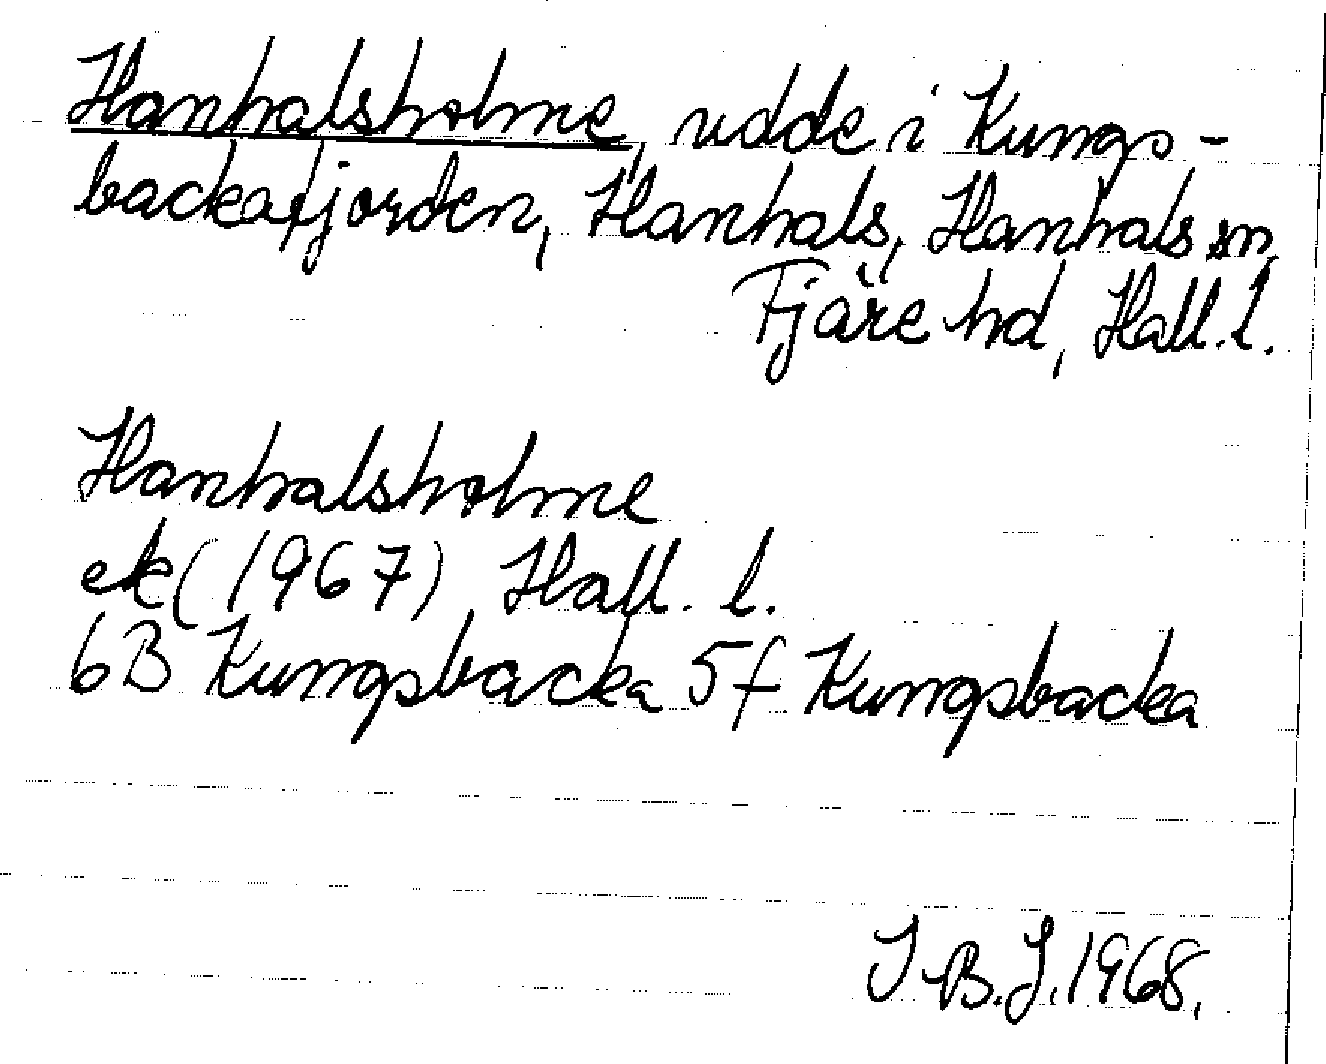 Hanhalsholme, udde i Kungs-
backafjorden, Hanhals, Hanhals sn,
Fjäre hd, Hall. l.
Hanhalsholme
ek (1967), Hall. l.
6B Kungsbacka 5f Kungsbacka
I B. J. 1968.